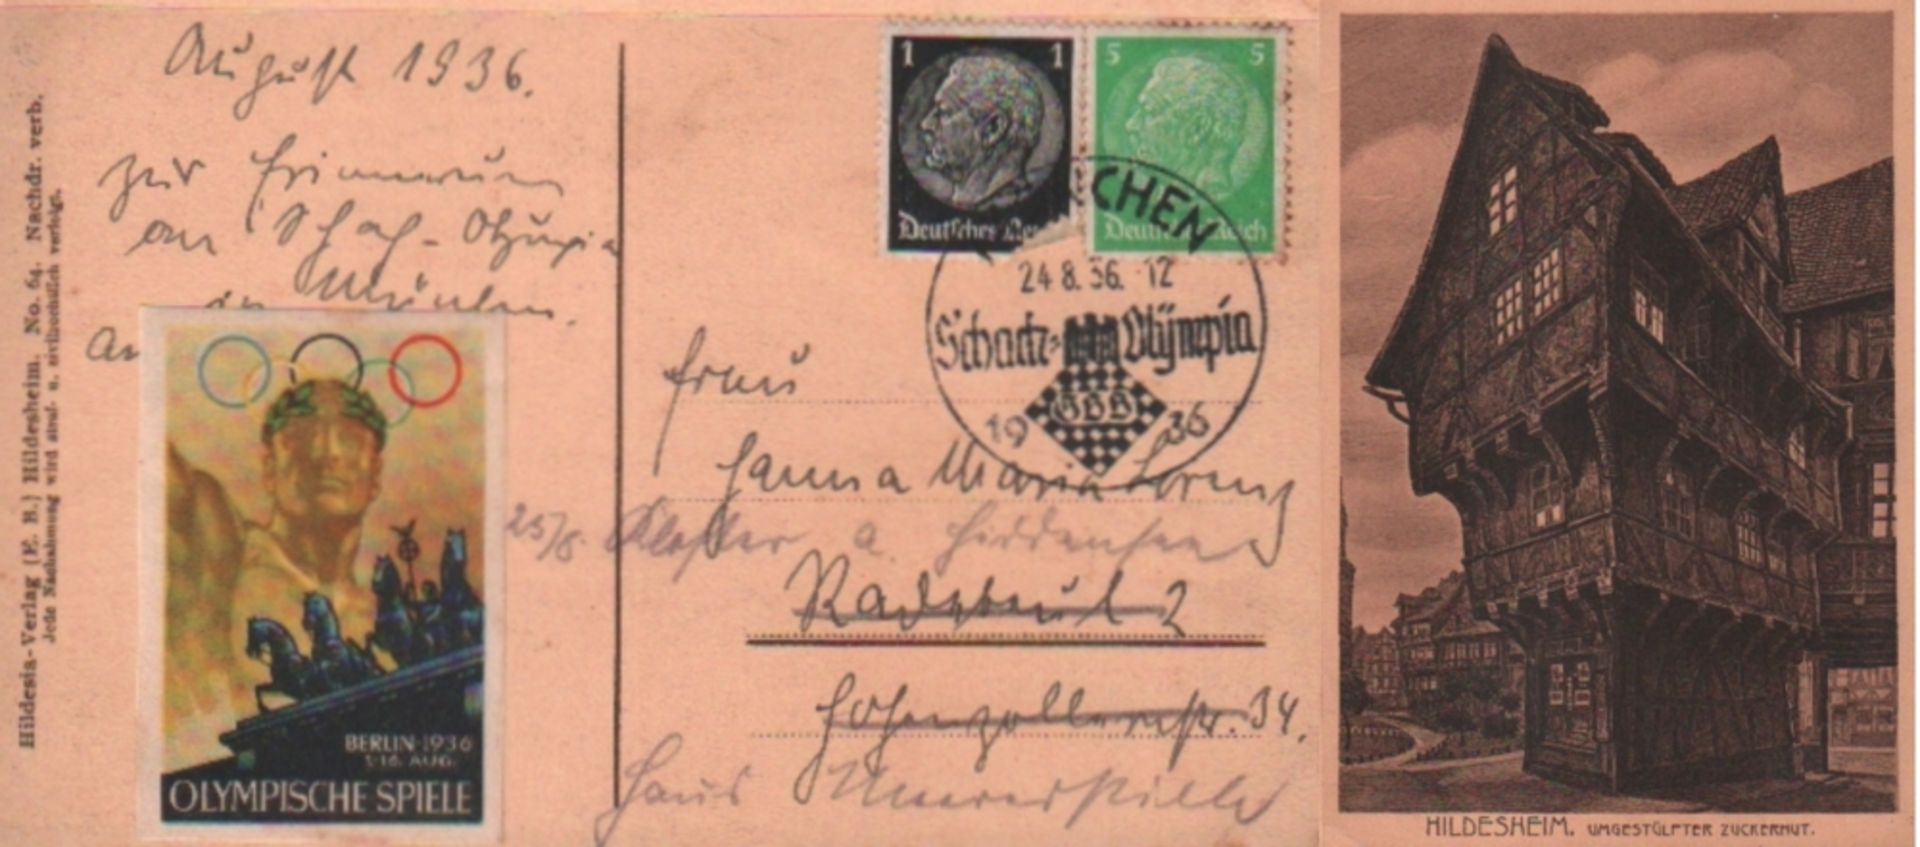 Hildesia-Verlag (E. B.) Hildesheim. No. 64. Nachdr. verb.
Jede Nachahmung wird straf- u. zivilrechtlich verfolgt.
August 1936.
zur Erinnerung
an Schach-Olympia
in München.
BERLIN-1936
1-16. AUG.
OLYMPISCHE SPIELE
1 1
Deutsches
5 5
Reich
CHEN
24.8.36. 12
Schach-Olympia
1936
GSB
Frau
Hanna Maria Lorenz
25/8. Kloster a. Hiddensee
Radebeul 2
Hohenzollernstr. 34.
Haus
HILDESHEIM. UMGESTÜLPTER ZUCKERHUT.